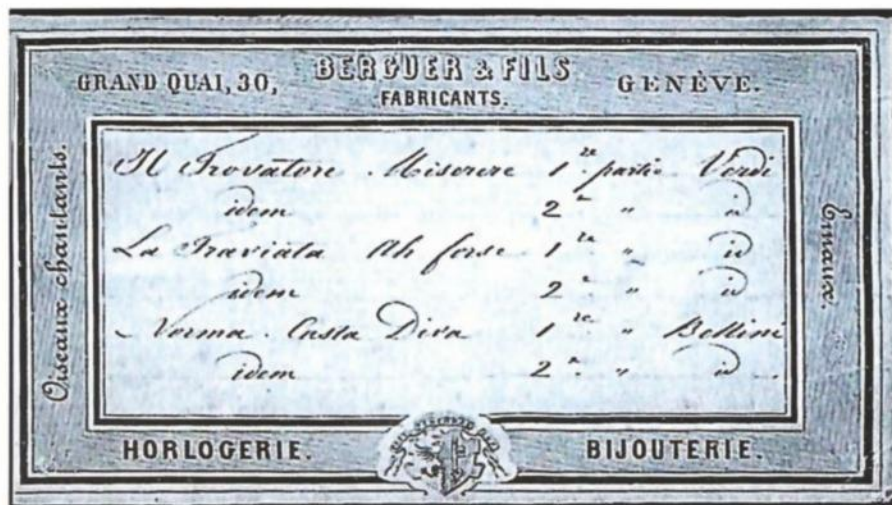 BERGUER & FILS
GRAND QUAI, 30, GENÈVE.
FABRICANTS.
Oiseaux chantants.
Il Trovatore . Miserere 1re partie Verdi
idem 2e " id
La Traviata Ah forse 1re " id
idem 2e " id
Norma . Casta Diva 1re " Bellini
idem 2e " id
Emaux.
HORLOGERIE. BIJOUTERIE.